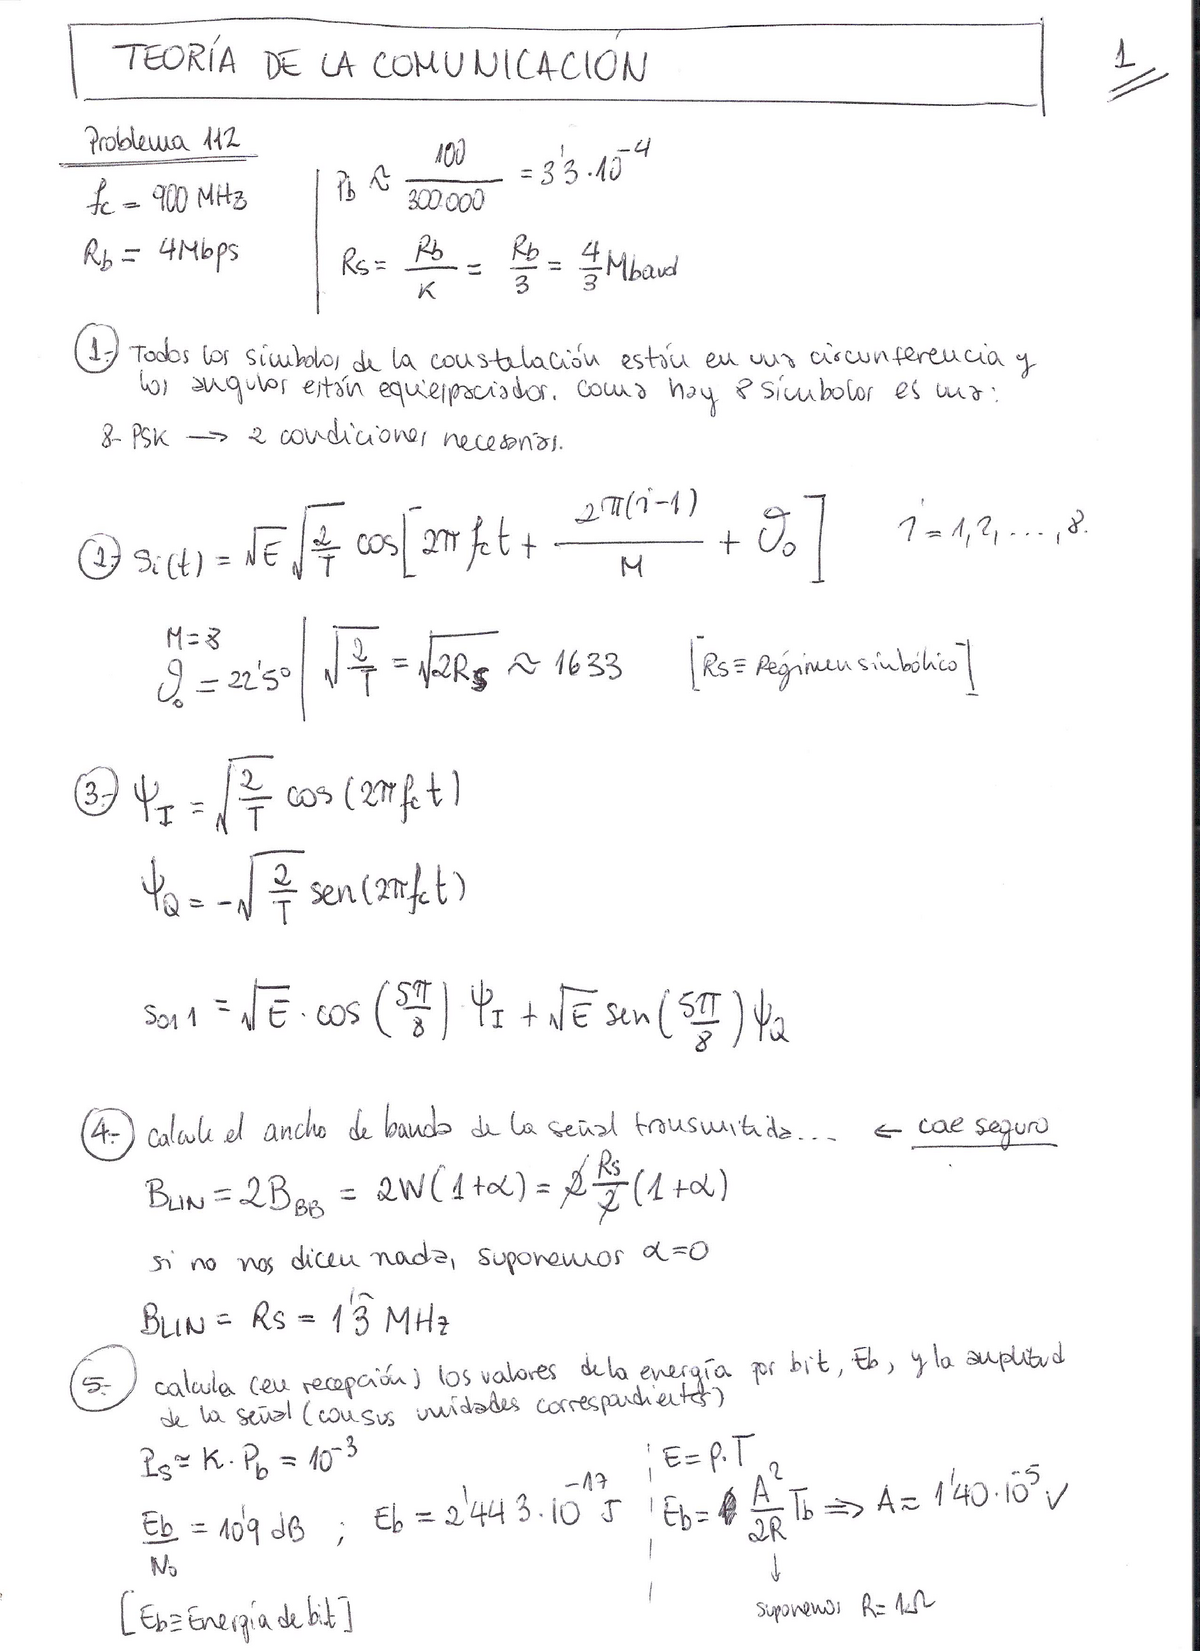 TEORÍA DE LA COMUNICACIÓN
1
Problema 112
fc = 900 MHz
Rb = 4Mbps
Pb ≈ 100/300.000 = 3'3·10^-4
Rs = Rb/K = Rb/3 = 4/3 Mbaud
1.- Todos los símbolos de la constelación están en una circunferencia y
los ángulos están equiespaciados. Como hay 8 símbolos es una:
8-PSK → 2 condiciones necesarias.
2.- Si(t) = √E √(2/T) cos[2π fc t + 2π(i-1)/M + ϑ₀] i = 1,2, ..., 8.
M=8
ϑ₀ = 22'5º | √(2/T) = √(2Rs) ≈ 1633 [Rs ≡ Régimen simbólico]
3.- ψI = √(2/T) cos(2πfc t)
ψQ = -√(2/T) sen(2πfc t)
S011 = √E · cos(5π/8) ψI + √E sen(5π/8) ψQ
4.- calcule el ancho de banda de la señal transmitida... ← cae seguro
BLIN = 2BBB = 2W(1+α) = 2 Rs/2 (1+α)
si no nos dicen nada, suponemos α=0
BLIN = Rs = 1'3̂ MHz
5.- calcula (en recepción) los valores de la energía por bit, Eb, y la amplitud
de la señal (con sus unidades correspondientes)
Ps ≃ K·Pb = 10^-3
Eb/No = 10'9 dB ; Eb = 2'443·10^-17 J
[Eb≡Energía de bit]
E = P·T
Eb = A²/2R Tb ⇒ A = 1'40·10^-5 V
↓
suponemos R = 1Ω